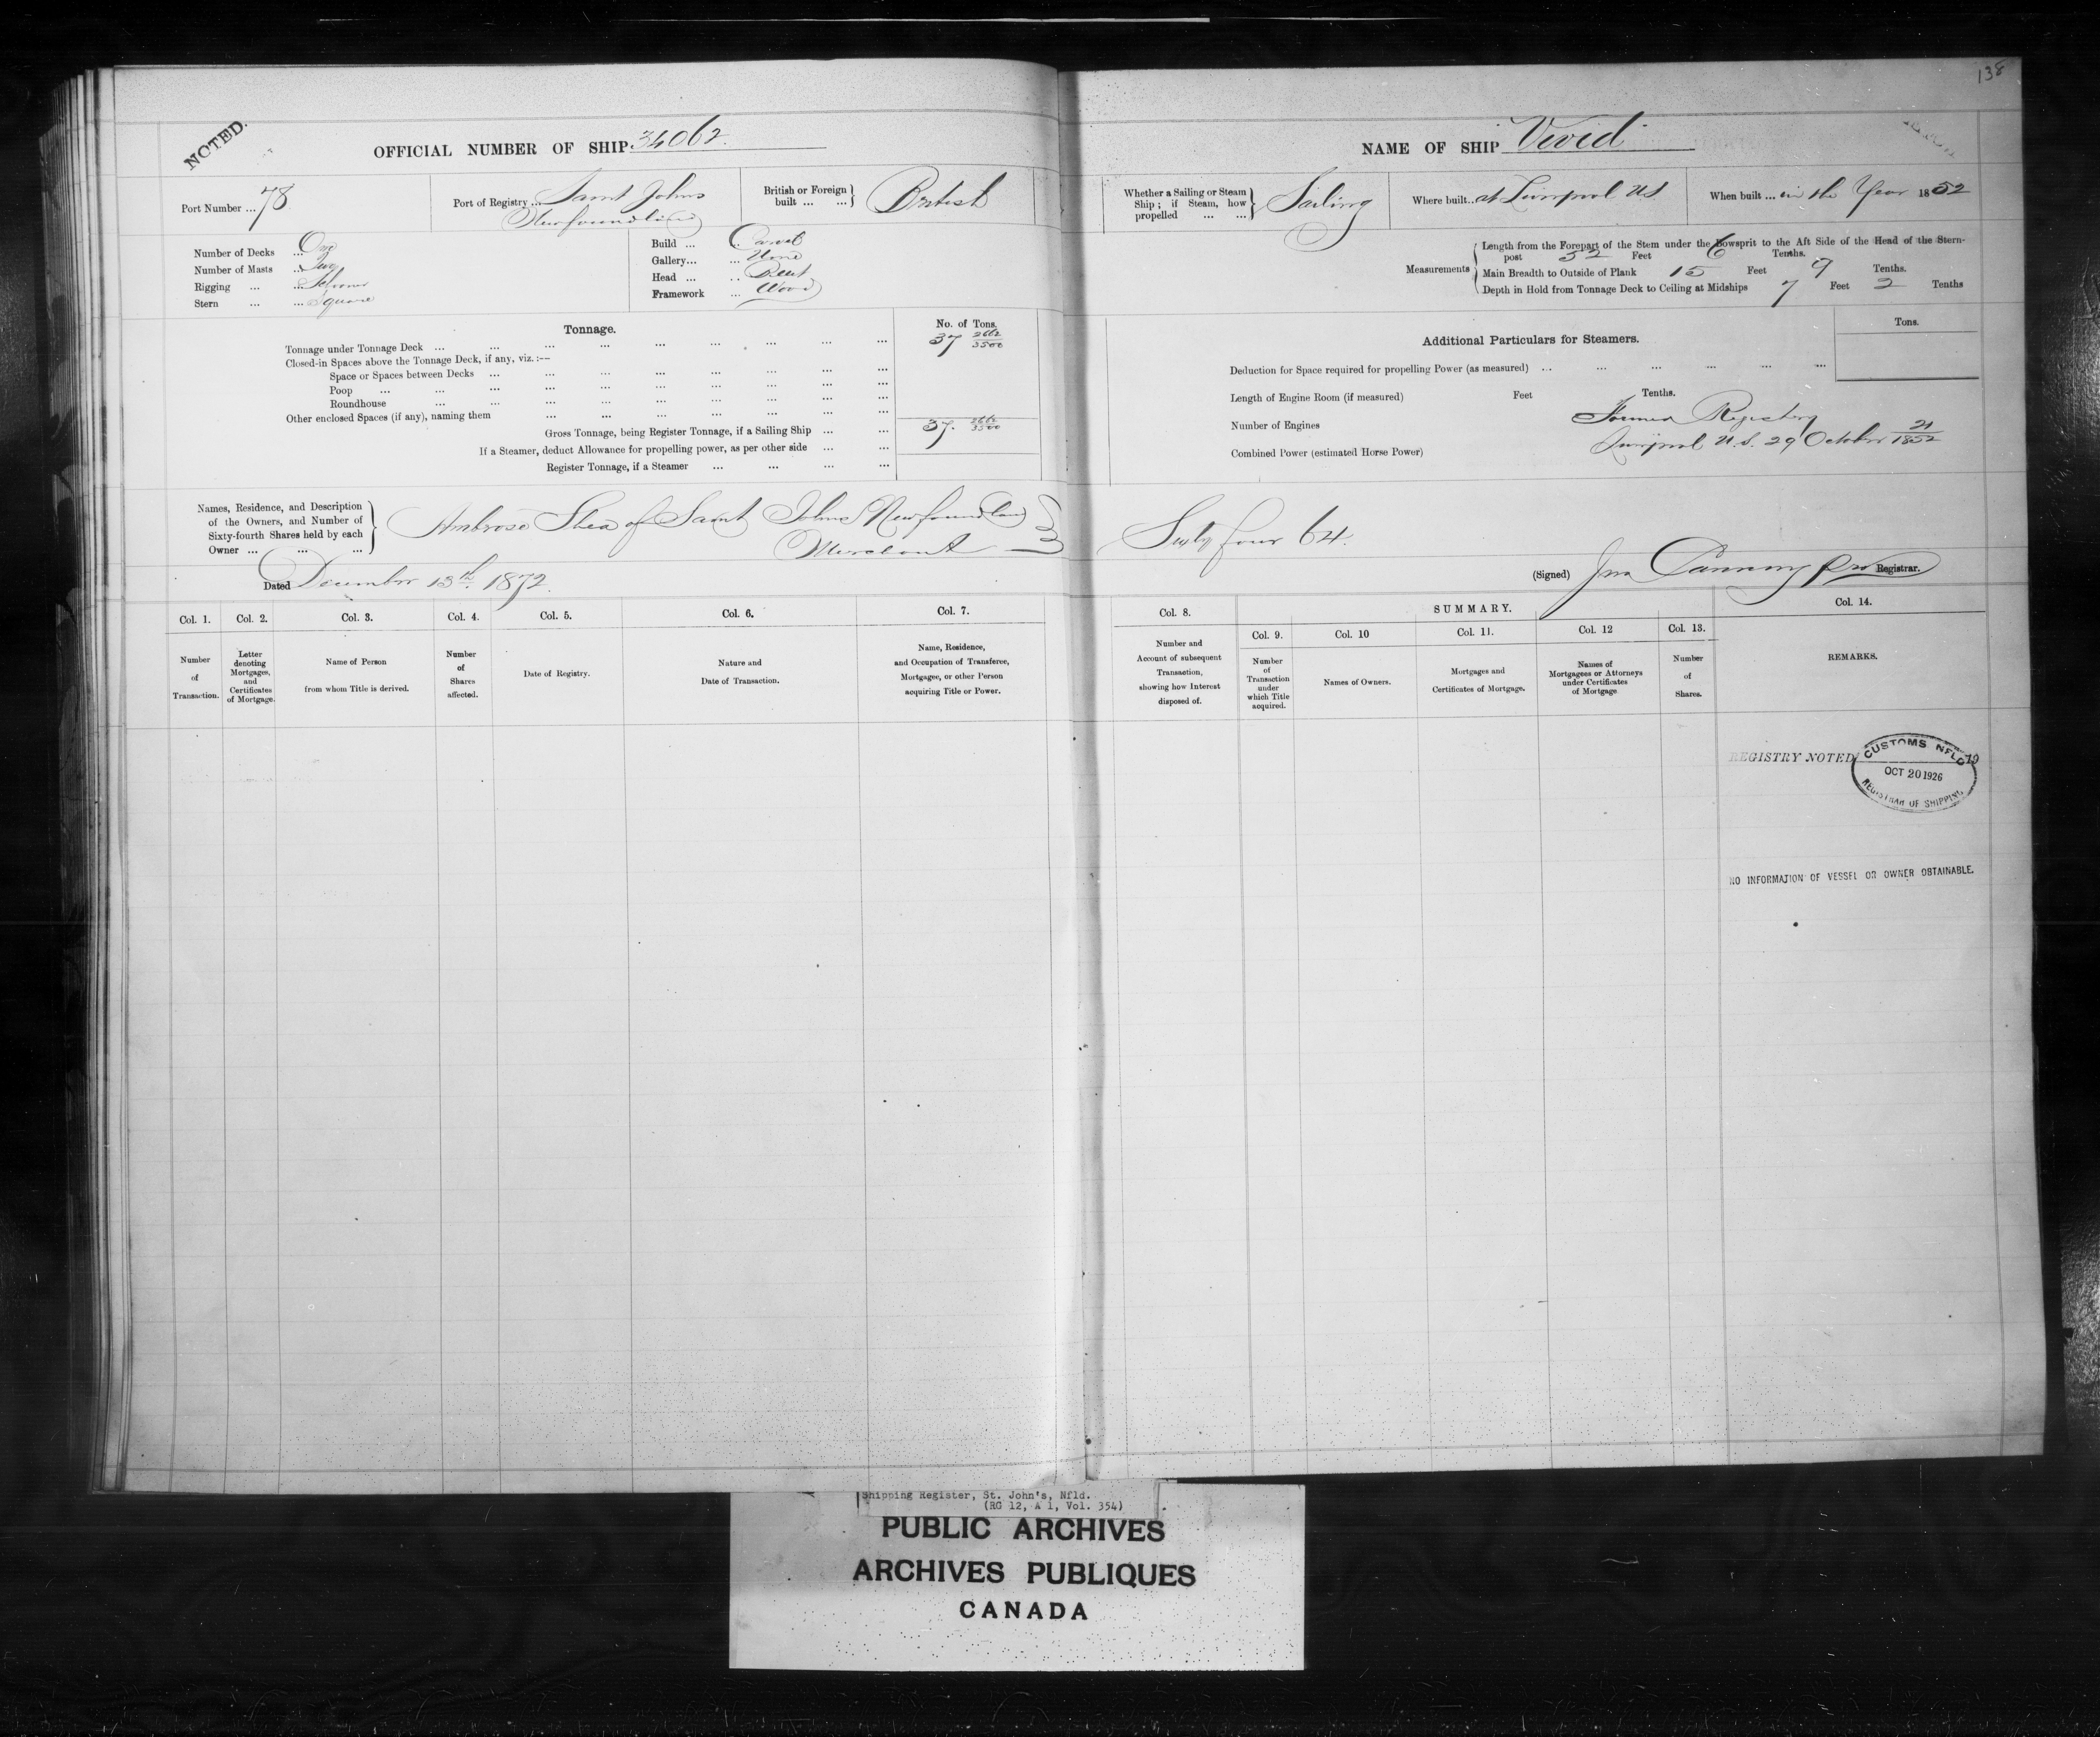 138
NOTED.
OFFICIAL NUMBER OF SHIP 34062.
NAME OF SHIP Vivid
Port Number ... 78
Port of Registry ... Saint Johns
Newfoundland
British or Foreign
built ... ... } British
Whether a Sailing or Steam
Ship ; if Steam, how
propelled ... ... } Sailing
Where built.. at Liverpool NS
When built ... in the Year 1852
Number of Decks ... One
Number of Masts ... Two
Rigging ... ... Schooner
Stern ... ... Square
Build ... Carvel
Gallery... ... None
Head ... ..
Framework ... Wood
Measurements
Length from the Forepart of the Stem under the Bowsprit to the Aft Side of the Head of the Stern-
post 52 Feet 6 Tenths.
Main Breadth to Outside of Plank 15 Feet 9 Tenths.
Depth in Hold from Tonnage Deck to Ceiling at Midships 7 Feet 2 Tenths
Tonnage.
No. of Tons.
Tonnage under Tonnage Deck ... ... ... ... ... ... ... ... 37 2662/3500
Closed-in Spaces above the Tonnage Deck, if any, viz. :—
Space or Spaces between Decks ... ... ... ... ... ... ... ...
Poop ... ... ... ... ... ... ... ... ...
Roundhouse ... ... ... ... ... ... ... ...
Other enclosed Spaces (if any), naming them ... ... ... ... ... ... ...
Gross Tonnage, being Register Tonnage, if a Sailing Ship ... ... 37. 2662/3500
If a Steamer, deduct Allowance for propelling power, as per other side ... ...
Register Tonnage, if a Steamer ... ... ... ...
Additional Particulars for Steamers.
Tons.
Deduction for Space required for propelling Power (as measured) ... ... ... ... ... ...
Length of Engine Room (if measured) Feet Tenths.
Number of Engines
Combined Power (estimated Horse Power)
Former Registry
Liverpool N.S. 29 October 21/1852
Names, Residence, and Description
of the Owners, and Number of
Sixty-fourth Shares held by each
Owner ... ... ...
Ambrose Shea of Saint Johns Newfoundland
Merchant
Sixty four 64.
Dated December 13th. 1872.
(Signed) Jno Canning Registrar.
Col. 1. Col. 2. Col. 3. Col. 4. Col. 5. Col. 6. Col. 7.
Number
of
Transaction.
Letter
denoting
Mortgages,
and
Certificates
of Mortgage.
Name of Person
from whom Title is derived.
Number
of
Shares
affected.
Date of Registry.
Nature and
Date of Transaction.
Name, Residence,
and Occupation of Transferee,
Mortgagee, or other Person
acquiring Title or Power.
Col. 8.
Number and
Account of subsequent
Transaction,
showing how Interest
disposed of.
SUMMARY.
Col. 9. Col. 10 Col. 11. Col. 12 Col. 13.
Number
of
Transaction
under
which Title
acquired.
Names of Owners.
Mortgages and
Certificates of Mortgage.
Names of
Mortgagees or Attorneys
under Certificates
of Mortgage
Number
of
Shares.
Col. 14.
REMARKS.
REGISTRY NOTED 19
CUSTOMS NFLD
OCT 20 1926
REGISTRAR OF SHIPPING
NO INFORMATION OF VESSEL OR OWNER OBTAINABLE.
Shipping Register, St. John's, Nfld.
(RG 12, A 1, Vol. 354)
PUBLIC ARCHIVES
ARCHIVES PUBLIQUES
CANADA